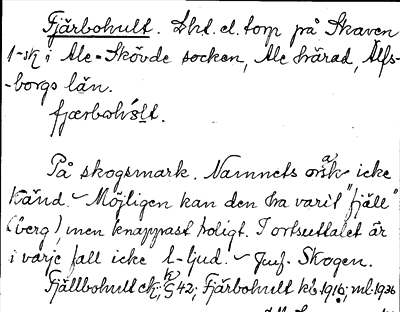 Fjärbohult. Lht. el. torp på Skaven
1-sk i Ale-Skövde socken, Ale härad, Älfs-
-borgs län.
fjærbohúlt.
På skogsmark. Namnets orsak icke
känd. - Möjligen kan den ha varit "fjäll"
(berg) men knappast troligt. I ortsuttalet är
i varje fall icke l-ljud. - Jmf. Skogen.
Fjällbohult ck; G 42; Fjärbohult kb 1916; ml. 1936